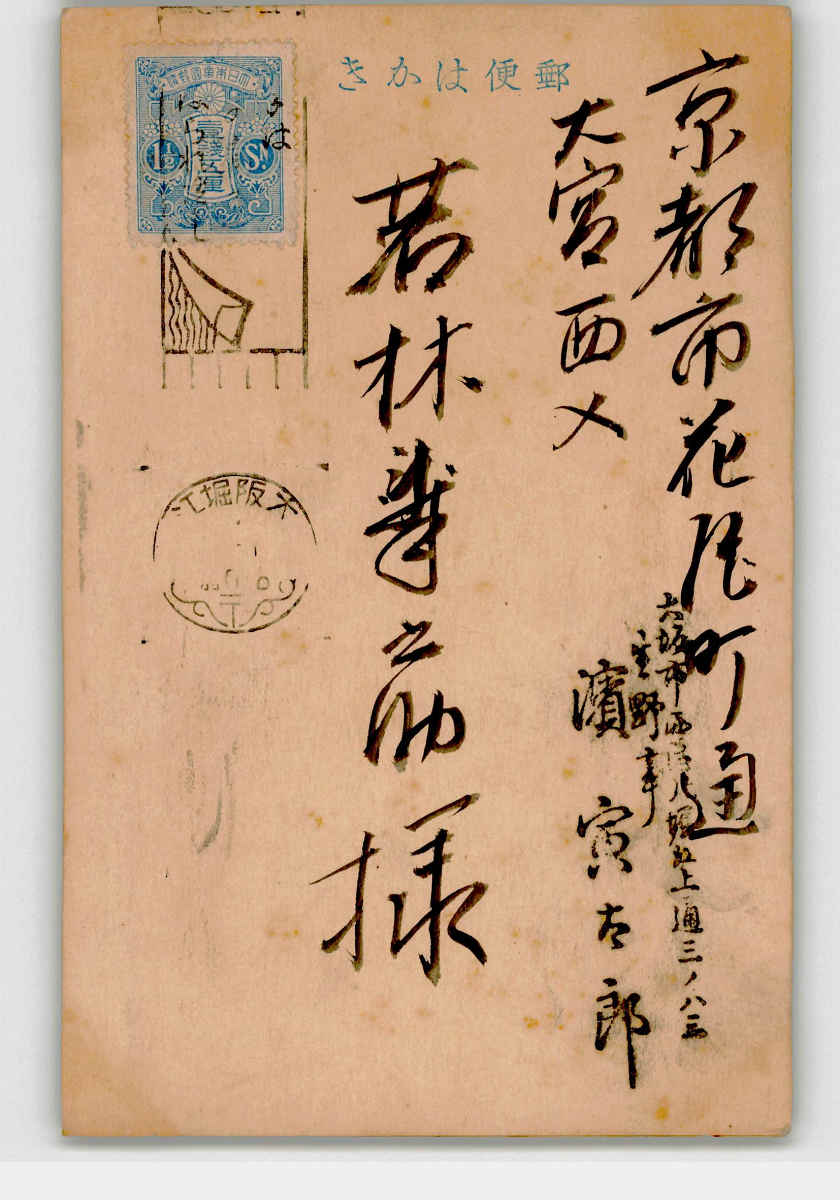 郵便はかき
京都市花屋町通
大宮西入
若林華之助様
大坂市西区北堀江上通三ノ八三
濱寅太郎
大日本帝國郵便
壹錢五厘
1½ Sn
大阪堀江